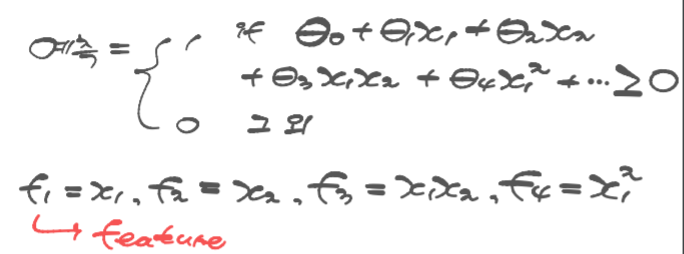 예측 = { 1 if θ₀ + θ₁x₁ + θ₂x₂
+ θ₃x₁x₂ + θ₄x₁² + ... ≥ 0
0 그 외
f₁ = x₁, f₂ = x₂, f₃ = x₁x₂, f₄ = x₁²
↳ feature